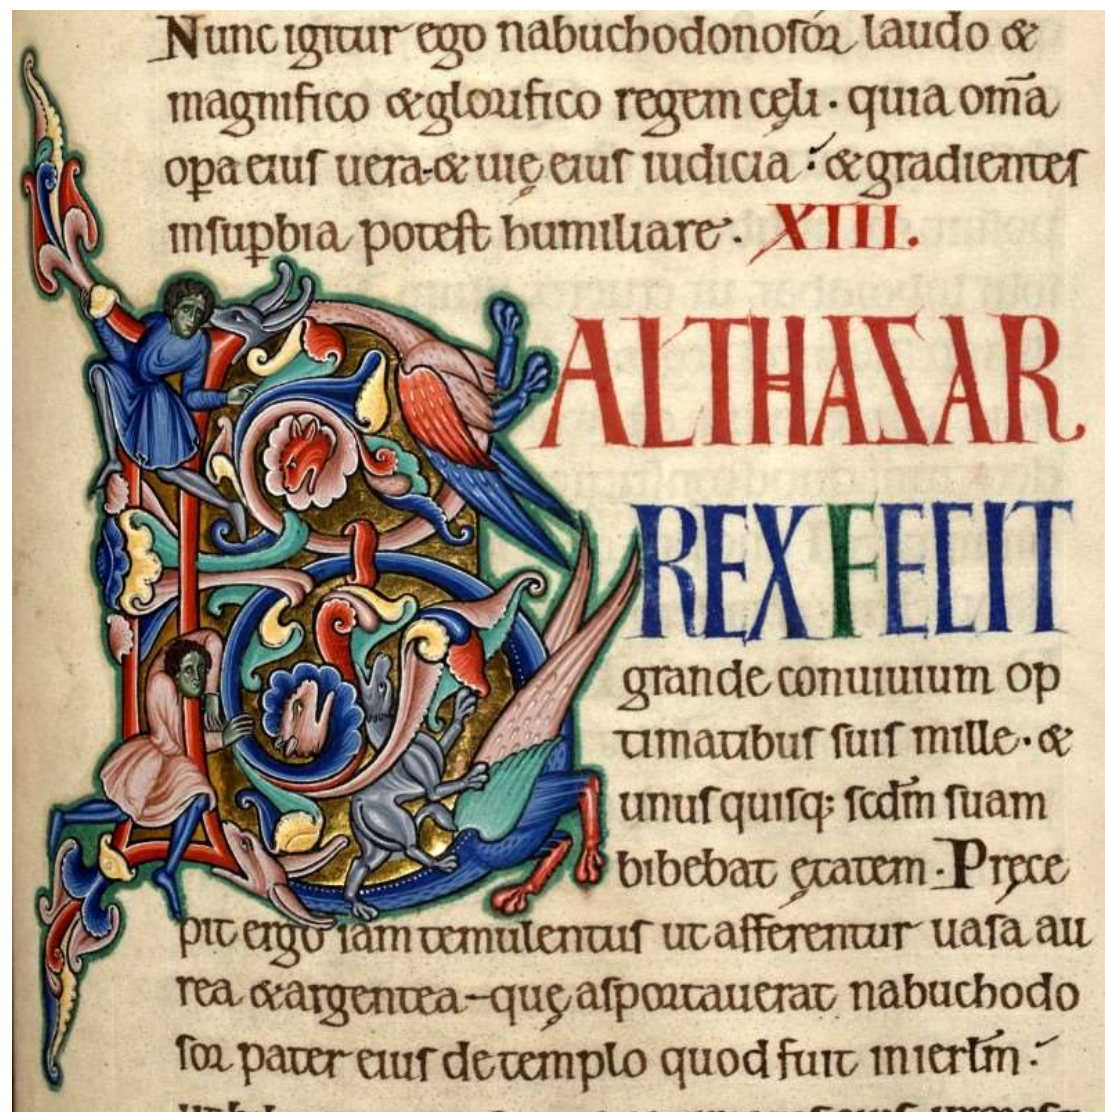 Nunc igitur ego nabuchodonosor laudo &
magnifico & glorifico regem cęli · quia om̄a
op̱a eius uera · & uię eius iudicia : & gradientes
in sup̱bia potest humiliare · XIII.
BALTHASAR
REX FECIT
grande conuiuium op
timatibus suis mille · &
unusquisq; scd̄m suam
bibebat ętatem · Pręce
pit ergo iam temulentus ut afferentur uasa au
rea & argentea – quę asportauerat nabuchodo
sor pater eius de templo quod fuit in ierłm :